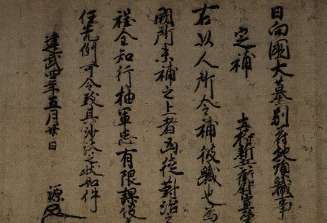 日向國大墓別府地頭職事
定補
右以人所令補彼職也為
闕所未補之上者凶徒對治
程全知行抽軍忠有限課役
任先例可令致其沙汰之状如件
建武四年五月廿日
源